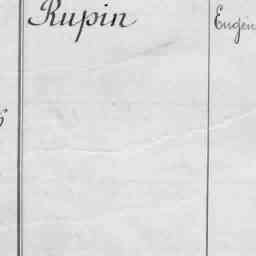 Rupin Eugèn